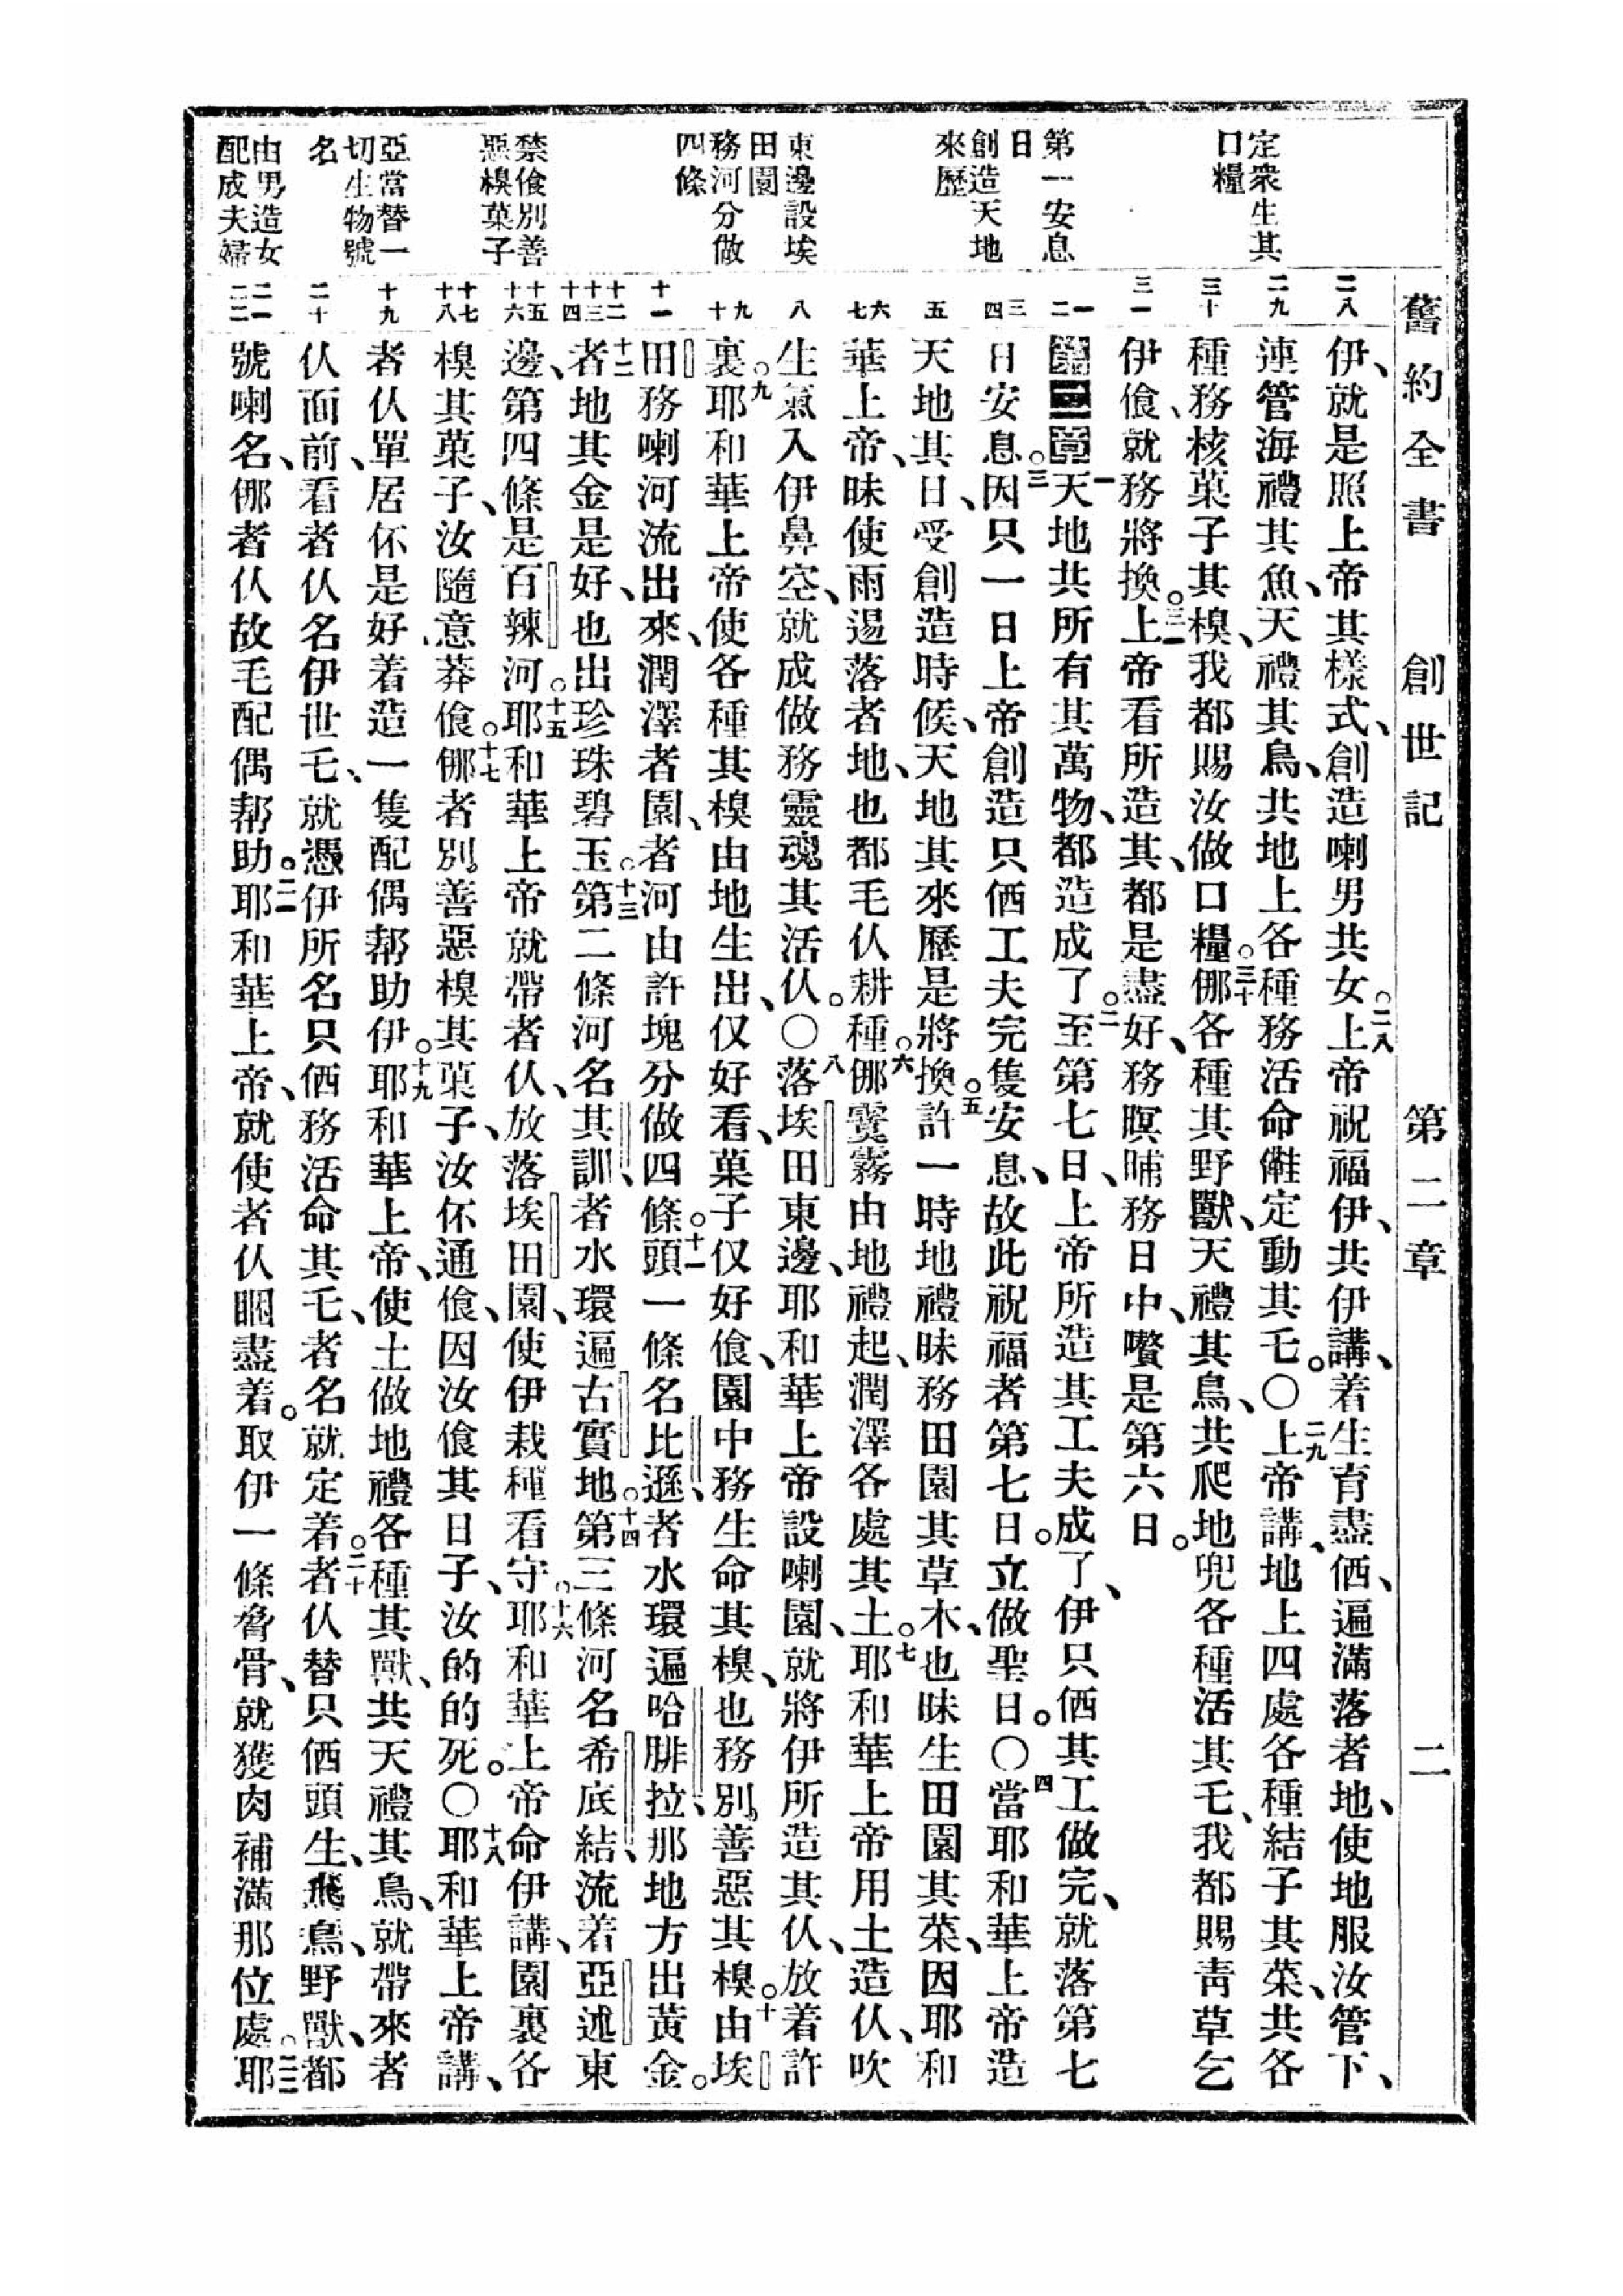 舊約全書　創世記　第二章　二
定衆生其
口糧
第一安息
日
創造天地
來歷
東邊設埃
田園
務河分做
四條
禁食別善
惡樹菓子
亞當替一
切生物號
名
由男造女
配成夫婦
二八
二九
三十
三一
一
二
三
四
五
六
七
八
九
十
十一
十二
十三
十四
十五
十六
十七
十八
十九
二十
二一
二二
伊、就是照上帝其樣式、創造喇男共女。二八上帝祝福伊、共伊講、着生育盡俩、遍滿落者地、使地服汝管下、
連管海禮其魚、天禮其鳥、共地上各種務活命㒰定動其乇。〇二九上帝講、地上四處各種結子其菜、共各
種務核菓子其樹、我都賜汝做口糧。三十挪各種其野獸、天禮其鳥、共爬地兜各種活其乇、我都賜靑草乞
伊食、就務將換。三一上帝看所造其、都是盡好、務暝晡務日中、嚽是第六日。
第二章一天地共所有其萬物、都造成了。二至第七日、上帝所造其工夫成了、伊只俩其工做完、就落第七
日安息。三因只一日上帝創造只俩工夫完隻安息、故此祝福者第七日。立做聖日。〇四當耶和華上帝造
天地其日、受創造時候、天地其來歷是將換。五許一時地禮昧務田園其草木、也昧生田園其菜、因耶和
華上帝、昧使雨逿落者地、也都毛仈耕種。六挪霙霧由地禮起、潤澤各處其土。七耶和華上帝用土造仈、吹
生氣入伊鼻空、就成做務靈魂其活仈。〇八落埃田東邊、耶和華上帝設喇園、就將伊所造其仈、放着許
裏。九耶和華上帝使各種其樹由地生出、仅好看、菓子仅好食、園中務生命其樹、也務別善惡其樹。十由埃
田務喇河流出來、潤澤者園、者河由許塊分做四條頭。十一一條名比遜、者水環遍哈腓拉、那地方出黃金。
十二者地其金是好、也出珍珠碧玉。十三第二條河名其訓、者水環遍古實地。十四第三條河名希底結、流着亞述東
邊、第四條是百辣河。十五耶和華上帝就帶者仈、放落埃田園、使伊栽種看守。十六耶和華上帝命伊講、園裏各
樹其菓子、汝隨意莽食。十七挪者別善惡樹其菓子、汝伓通食、因汝食其日子、汝的的死。〇十八耶和華上帝講、
者仈單居伓是好、着造一隻配偶幇助伊。十九耶和華上帝、使土做地禮各種其獸、共天禮其鳥、就帶來者
仈面前、看者仈名伊世乇、就憑伊所名只俩務活命其乇、者名就定着。二十者仈替只俩頭生、飛鳥、野獸、都
號喇名、挪者仈故毛配偶幇助。二一耶和華上帝、就使者仈睏盡着。取伊一條脅骨、就獲肉補滿那位處。二二耶